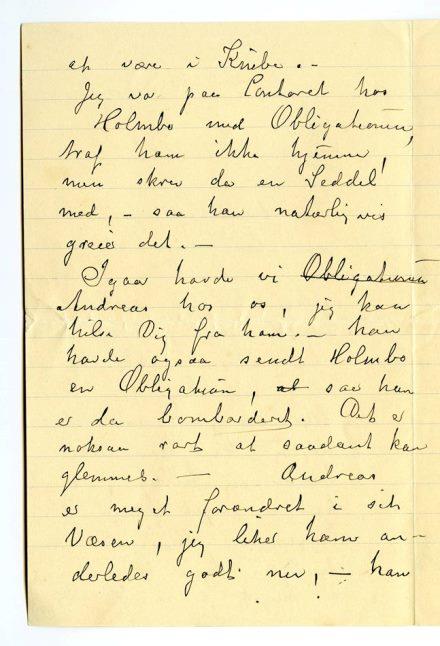 at være i Knibe. -
Jeg va paa Contoret hos
Holmbo med Obligationen,
traf ham ikke hjemme,
men skrev da en Seddel
med, - saa han naturligvis
greier det. -
Igaar havde vi Obligationen
Andreas hos os, jeg kan
hilse Dig fra ham. - han
havde ogsaa sendt Holmbo
en Obligation, at saa han
er da bombarderet. Det er
noksaa rart at saadant kan
glemmes. - Andreas
er meget forandret i sit
Væsen, jeg liker ham an-
derledes godt nu, - han